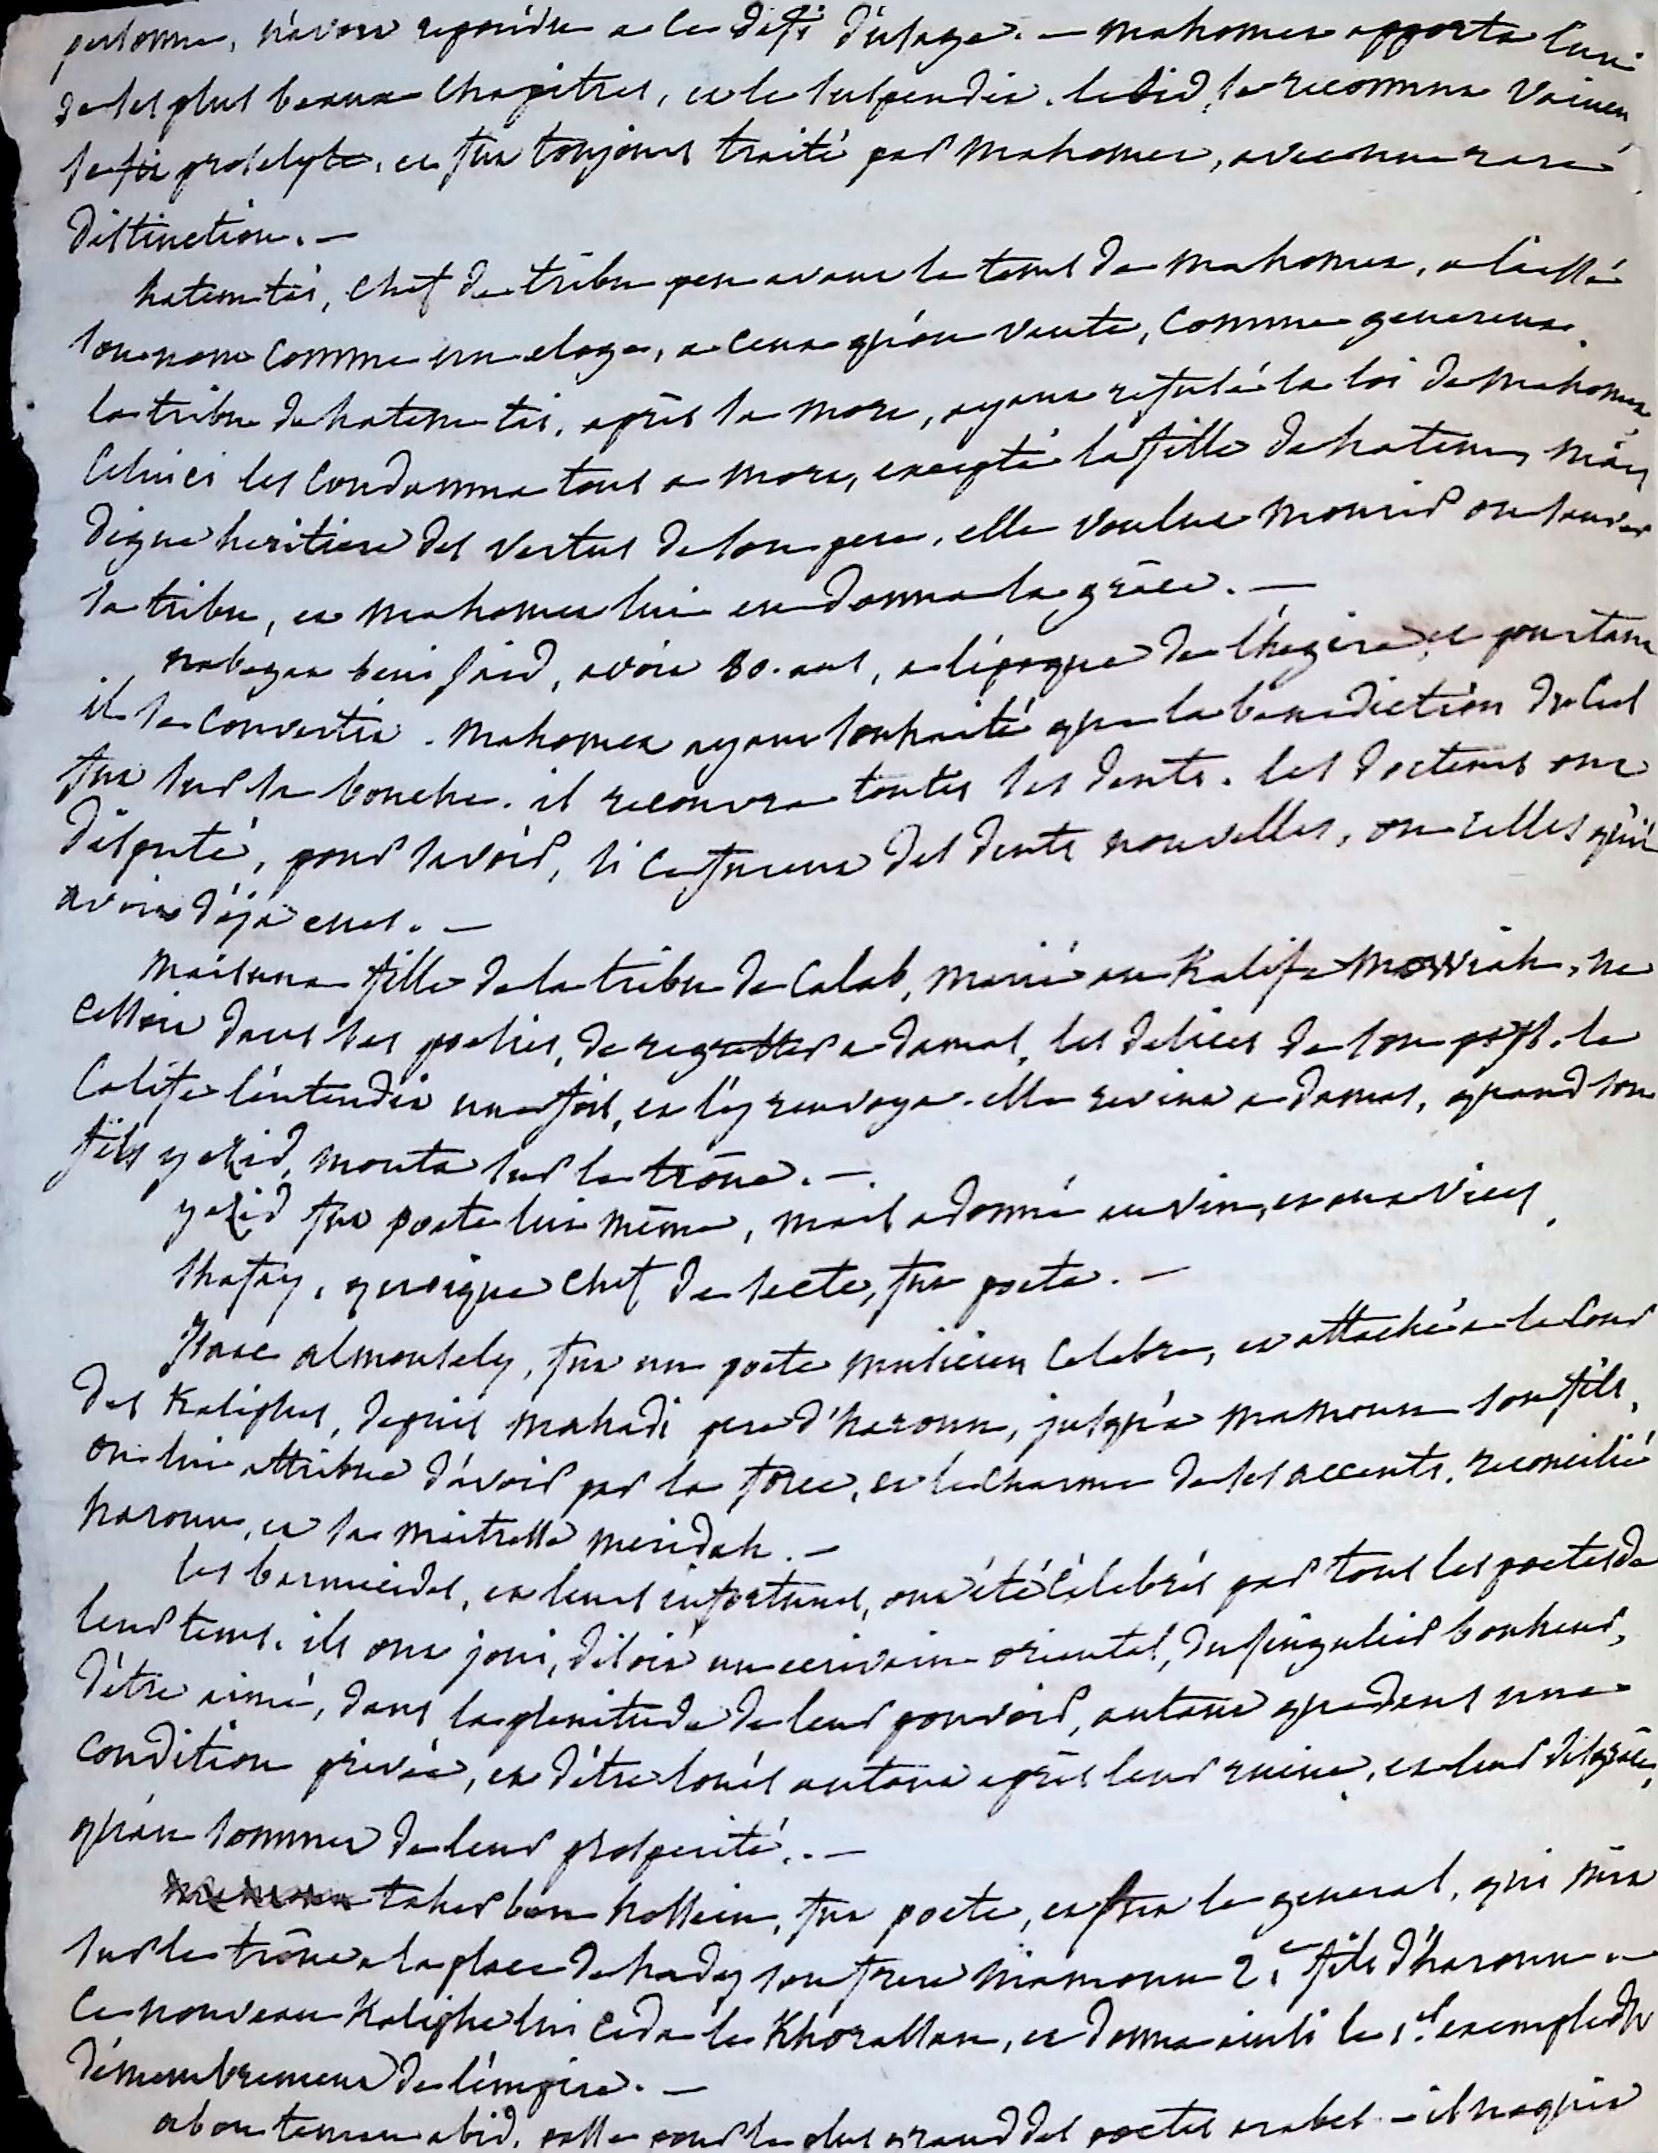 personne, n'avoit repondu a ce defi d'usage. — mahomet apporta l'un
de ses plus beaux chapitres, et le suspendit. lebid, se reconnut vaincu
se fit proselyte, et fut toujours traité par mahomet, avec une rare
distinction. —
hatemtaï, chef de tribu peu avant le tems de mahomet, a laissé
son nom comme un eloge, a ceux qu'on vante, comme genereux.
la tribu de hatem taï, après sa mort, ayant refusé la loi de mahomet,
celui ci les condamna tous a mort, excepté la fille de hatem, mais
digne heritiere des vertus de son pere, elle voulut mourir ou sauver
sa tribu, et mahomet lui en donna la grâce. —
nabegat beni said, avoit 80. ans, a l'époque de l'hegire, et pourtant
il se convertit. mahomet ayant souhaité que la benediction du ciel
fut sur sa bouche. il recouvra toutes ses dents. les docteurs ont
disputé, pour savoir, si ce furent des dents nouvelles, ou celles qu'il
avoit déja eues. —
maisuna fille de la tribu de calab, marié au kalife moaviah, ne
cessoit dans ses poesies, de regretter a damas, les delices de son pays. le
calife l'entendit une fois, et l'y renvoya. elle revint a damas, quand son
fils yezid, monta sur le trône. —
yezid fut poete lui même, mais adonné au vin, et aux vices.
shafay, quoique chef de secte, fut poete. —
Isaac almousely, fut un poete musicien celebre, et attaché a la cour
des kaliphes, depuis mahadi pere d'haroun, jusqu'a mamoun son fils.
on lui attribue d'avoir par la force, et le charme de ses accents, reconcilié
haroun, et sa maitresse meridah. —
les barmecides, et leurs infortunes, ont été célebrés par tous les poetes de
leur tems. ils ont joui, disoit un ecrivain oriental, du singulier bonheur,
d'être aimé, dans la plenitude de leur pouvoir, autant que dans une
condition privée, et d'être loués autant après leur ruine, et leur disgrâce,
qu'au sommet de leur prosperité. —
taher ben hossein, fut poete, et fut le general, qui mit
sur le trône a la place de hady son frere mamoun 2.e fils d'haroun. —
ce nouveau kaliphe lui ceda le khorassan, et donna ainsi le 1.er exemple du
démembrement de l'empire. —
abou temam abid, passe pour le plus grand des poetes arabes — il naquit